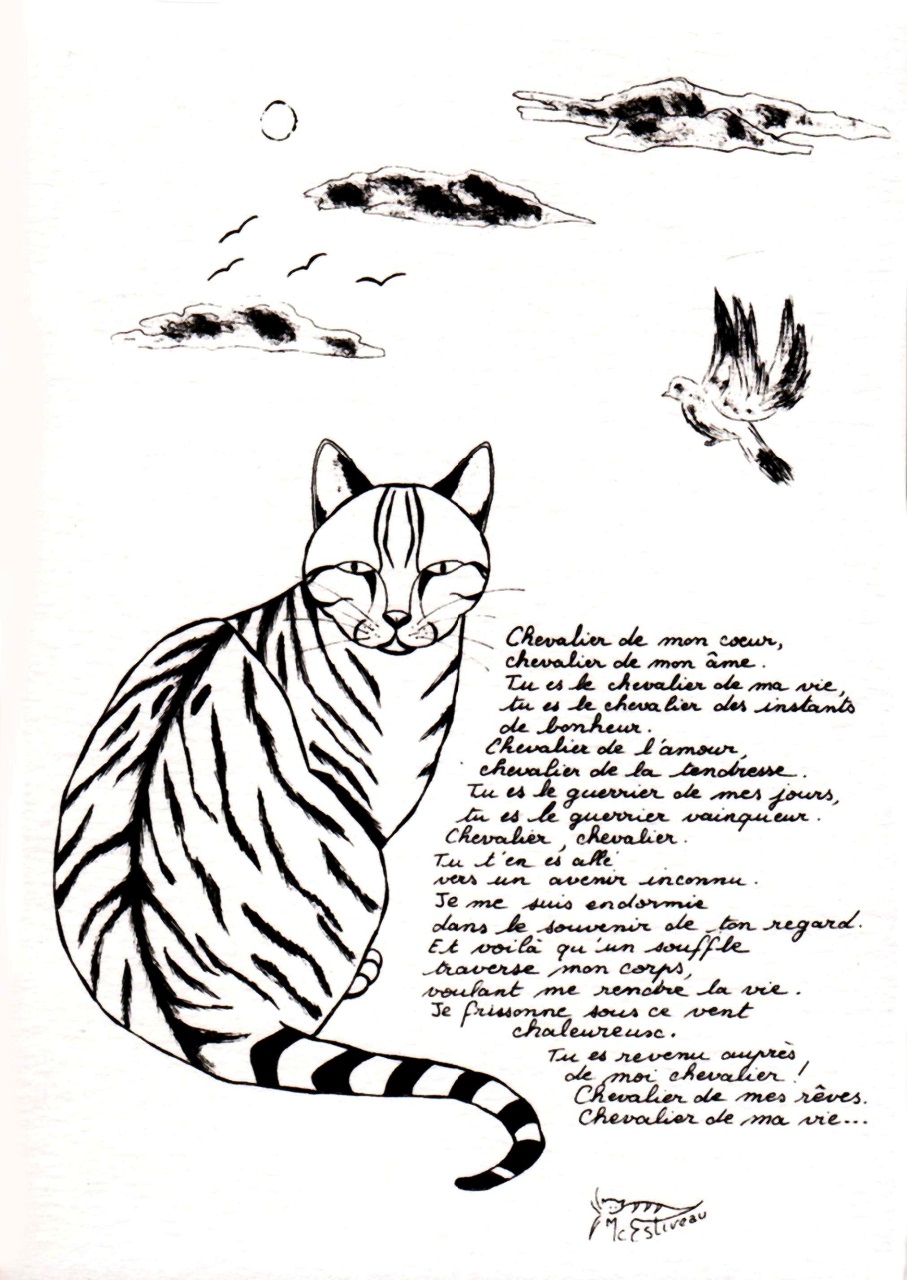 Chevalier de mon cœur,
chevalier de mon âme.
Tu es le chevalier de ma vie,
tu es le chevalier des instants
de bonheur.
Chevalier de l'amour,
chevalier de la tendresse.
Tu es le guerrier de mes jours,
tu es le guerrier vainqueur.
Chevalier, chevalier.
Tu t'en es allé
vers un avenir inconnu.
Je me suis endormie
dans le souvenir de ton regard.
Et voilà qu'un souffle
traverse mon corps,
voulant me rendre la vie.
Je frissonne sous ce vent
chaleureux.
Tu es revenu auprès,
de moi chevalier !
Chevalier de mes rêves.
Chevalier de ma vie...
McEstiveau